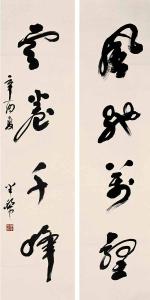 風馳萬壑
雲卷千峰
辛酉夏